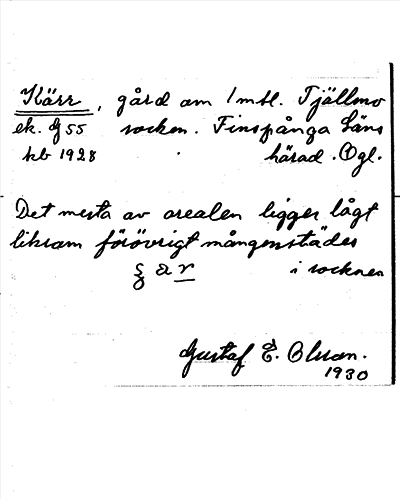 Kärr, gård om 1 mtl. Tjällmo
ek. g 55 socken. Finspånga läns
kb 1928 härad. Ögl.
Det mesta av arealen ligger lågt
liksom förövrigt mångenstädes
i socknen
Gustaf E. Olsson.
1930